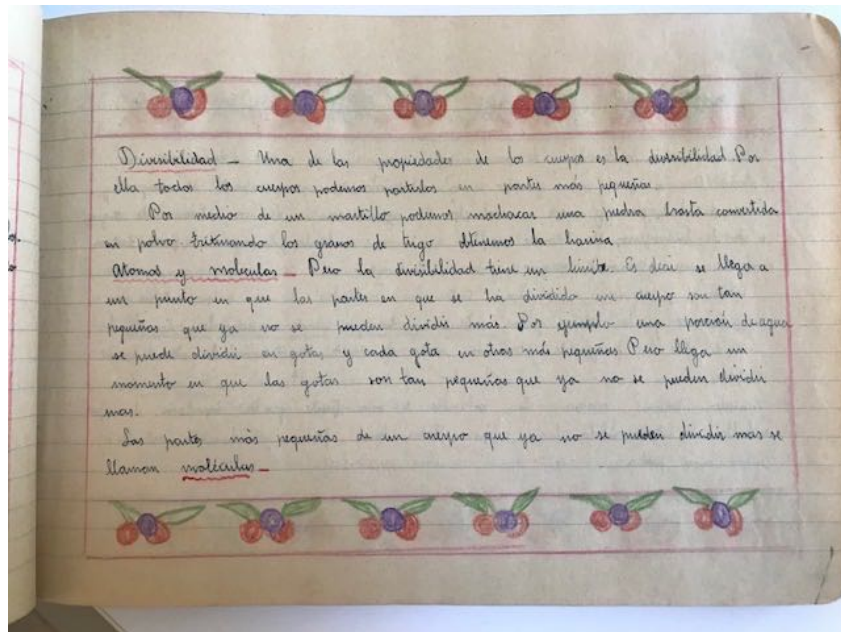 Divisibilidad — Una de las propiedades de los cuerpos es la divisibilidad. Por
ella todos los cuerpos podemos partirlos en partes más pequeñas.
Por medio de un martillo podemos machacar una piedra hasta convertida
en polvo triturando los granos de trigo obtenemos la harina
Atomos y moleculas — Pero la divisibilidad tiene un límite. Es desi se llega a
un punto en que las partes en que se ha dividido un cuerpo son tan
pequeñas que ya no se pueden dividir más. Por ejemplo una porción de agua
se puede dividir en gotas y cada gota en otras más pequeñas Pero llega un
momento en que las gotas son tan pequeñas que ya no se pueden dividir
mas.
Las partes más pequeñas de un cuerpo que ya no se pueden dividir mas se
llaman moléculas —